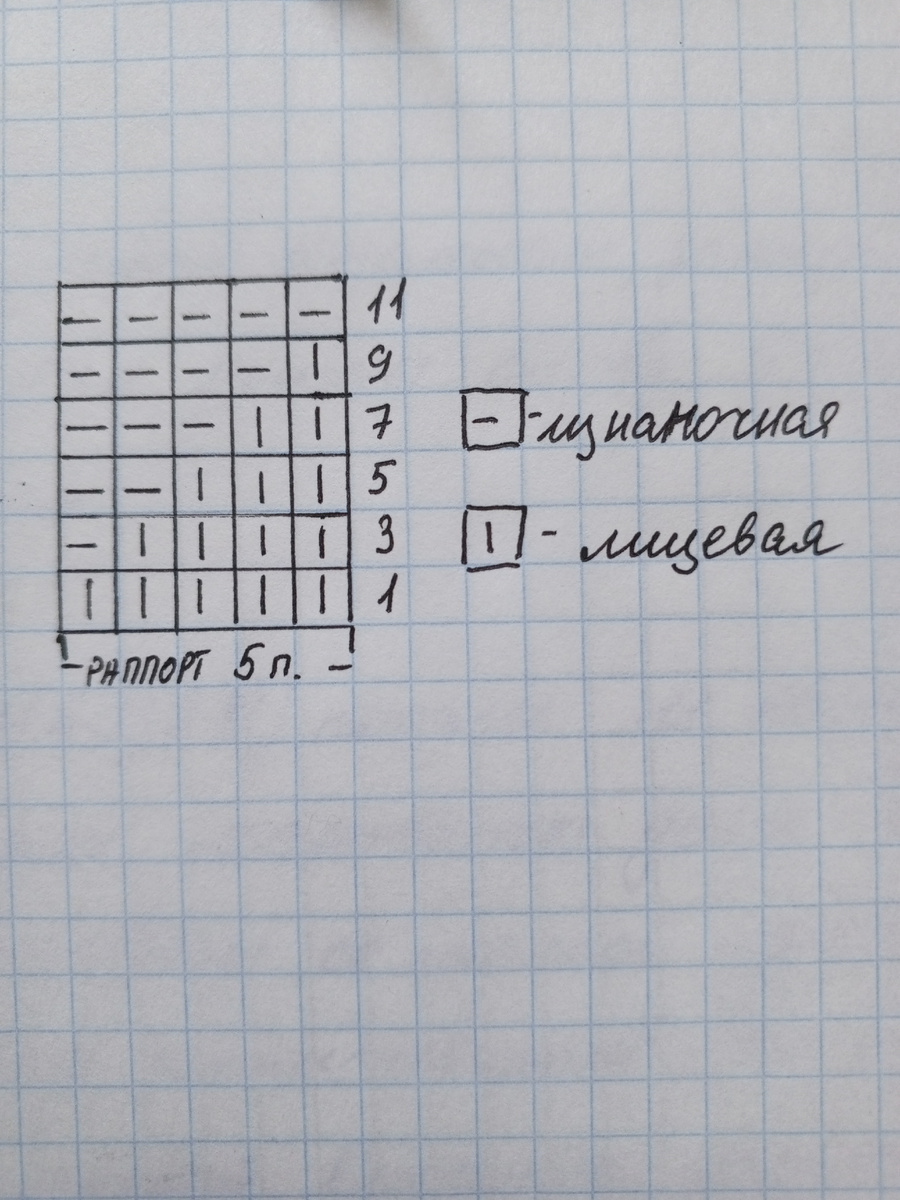 — — — — — 11
— — — — | 9
— — — | | 7
— — | | | 5
— | | | | 3
| | | | | 1
-РАППОРТ 5 п. -
— -изнаночная
| - лицевая